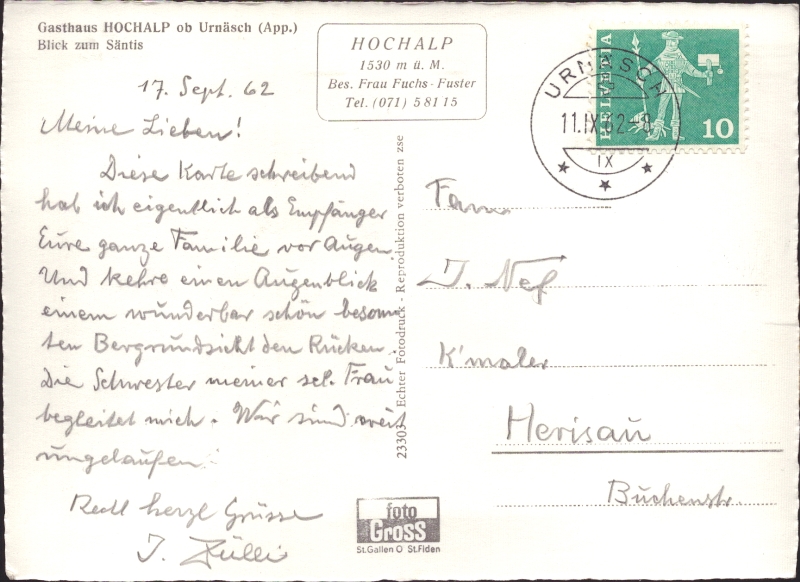 Gasthaus HOCHALP ob Urnäsch (App.)
Blick zum Säntis
HOCHALP
1530 m ü. M.
Bes. Frau Fuchs-Fuster
Tel. (071) 5 81 15
HELVETIA
10
URNÄSCH
11.IX.62-8
IX
17. Sept. 62
Meine Lieben!
Diese Karte schreibend
hab ich eigentlich als Empfänger
Eure ganze Familie vor Augen.
Und kehre einen Augenblick
einem wunderbar schön besonn-
ten Bergrundsicht den Rücken.
Die Schwester meiner sel. Frau
begleitet mich. Wir sind weit
umgelaufen.
Recht herzl Grüsse
J. Zülli
23303 - Echter Fotodruck - Reproduktion verboten zse
Fam.
J. Nef
K'maler
Herisau
Buchenstr.
foto
Gross
St.Gallen O St.Fiden